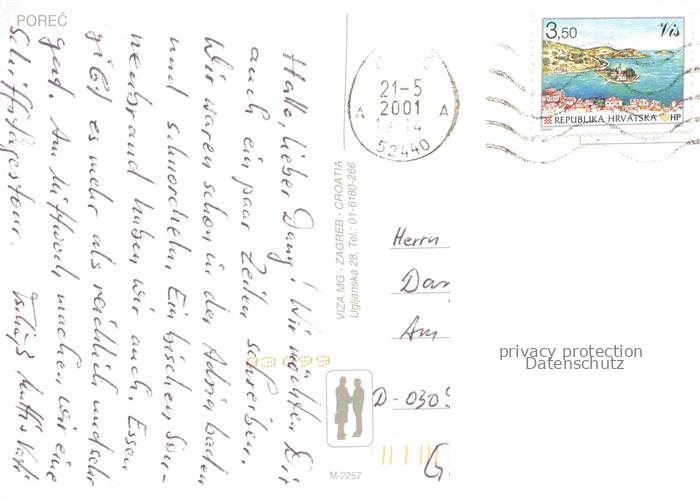 POREČ
Hallo, lieber Dany! Wir möchten Dir
auch ein paar Zeilen schreiben.
Wir waren schon in der Adria baden
und schnorcheln. Ein bischen Son-
nenbrand haben wir auch. Essen
gibt es mehr als reichlich und sehr
gut. Am Mittwoch machen wir eine
Schiffstagestour.
VIZA MG - ZAGREB - CROATIA
Ugljanska 28, Tel.: 01-6180-266
21-5
2001
A A
52440
3,50 Vis
REPUBLIKA HRVATSKA HP
Herrn
Dan
Am
D-030
G
privacy protection
Datenschutz
M-2257